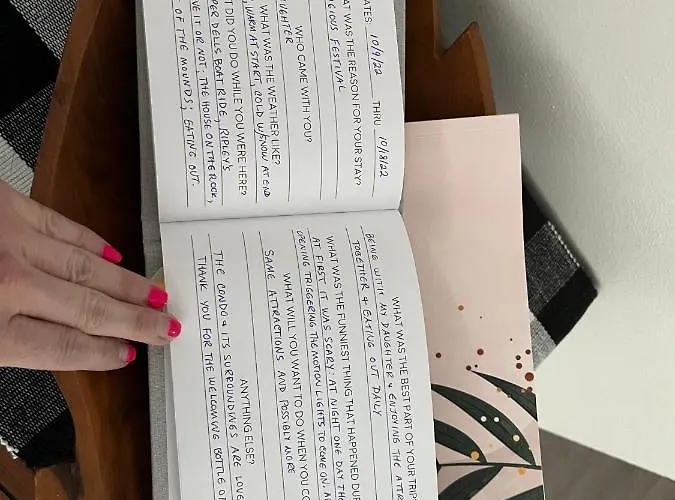 ATES: 10/9/22 THRU 10/18/22
AT WAS THE REASON FOR YOUR STAY?
GIOUS FESTIVAL
WHO CAME WITH YOU?
UGHTER
WHAT WAS THE WEATHER LIKE?
WARM AT START, COLD W/SNOW AT END
T DID YOU DO WHILE YOU WERE HERE?
PER DELLS BOAT RIDE, RIPLEY'S
VE IT OR NOT; THE HOUSE ON THE ROCK,
OF THE MOUNDS; EATING OUT.
WHAT WAS THE BEST PART OF YOUR TRIP
BEING WITH MY DAUGHTER & ENJOYING THE ATTR
TOGETHER & EATING OUT DAILY
WHAT WAS THE FUNNIEST THING THAT HAPPENED DU
AT FIRST IT WAS SCARY: AT NIGHT ONE DAY TH
OPENING TRIGGERING THE MOTION LIGHTS TO COME ON, A
WHAT WILL YOU WANT TO DO WHEN YOU CO
SAME ATTRACTIONS AND POSSIBLY MORE
ANYTHING ELSE?
THE CONDO & ITS SURROUNDINGS ARE LOVE
THANK YOU FOR THE WELCOMING BOTTLE OF